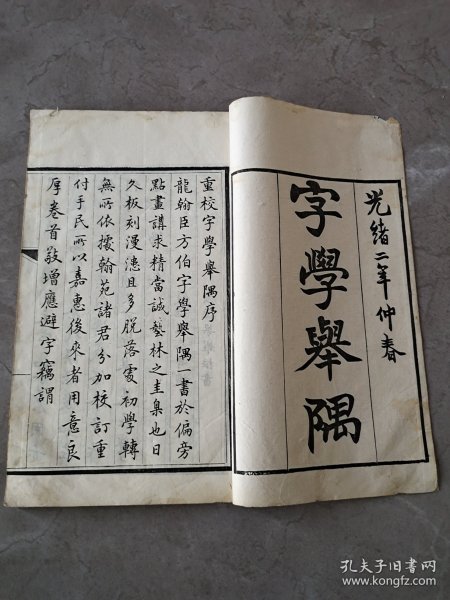 光緒二年仲春
字學舉隅
重校字學舉隅序
龍翰臣方伯字學舉隅一書於偏旁
點畫講求精當誠藝林之圭臬也日
久板刻漫漶且多脫落處初學轉
無所依據翰苑諸君分加校訂重
付手民所以嘉惠後來者用意良
厚卷首敬增應避字竊謂
孔夫子旧书网
www.kongfz.com